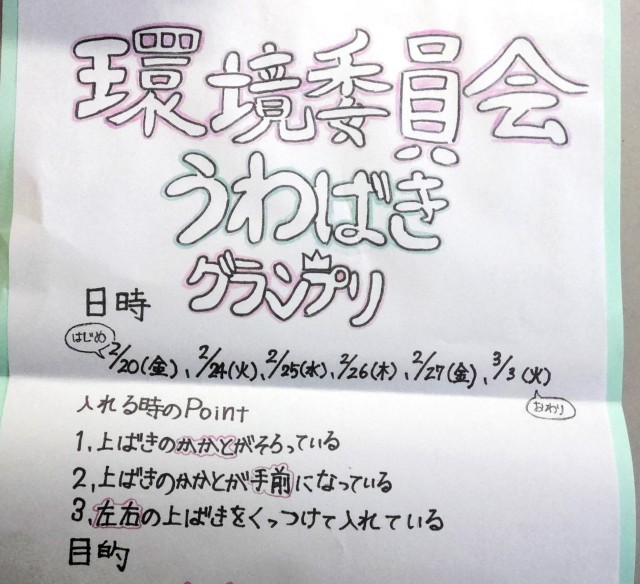 環境委員会
うわばき
グランプリ
日時
はじめ
2/20(金)、2/24(火)、2/25(水)、2/26(木)、2/27(金)、3/3(火)
おわり
入れる時のPoint
1、上ばきのかかとがそろっている
2、上ばきのかかとが手前になっている
3、左右の上ばきをくっつけて入れている
目的